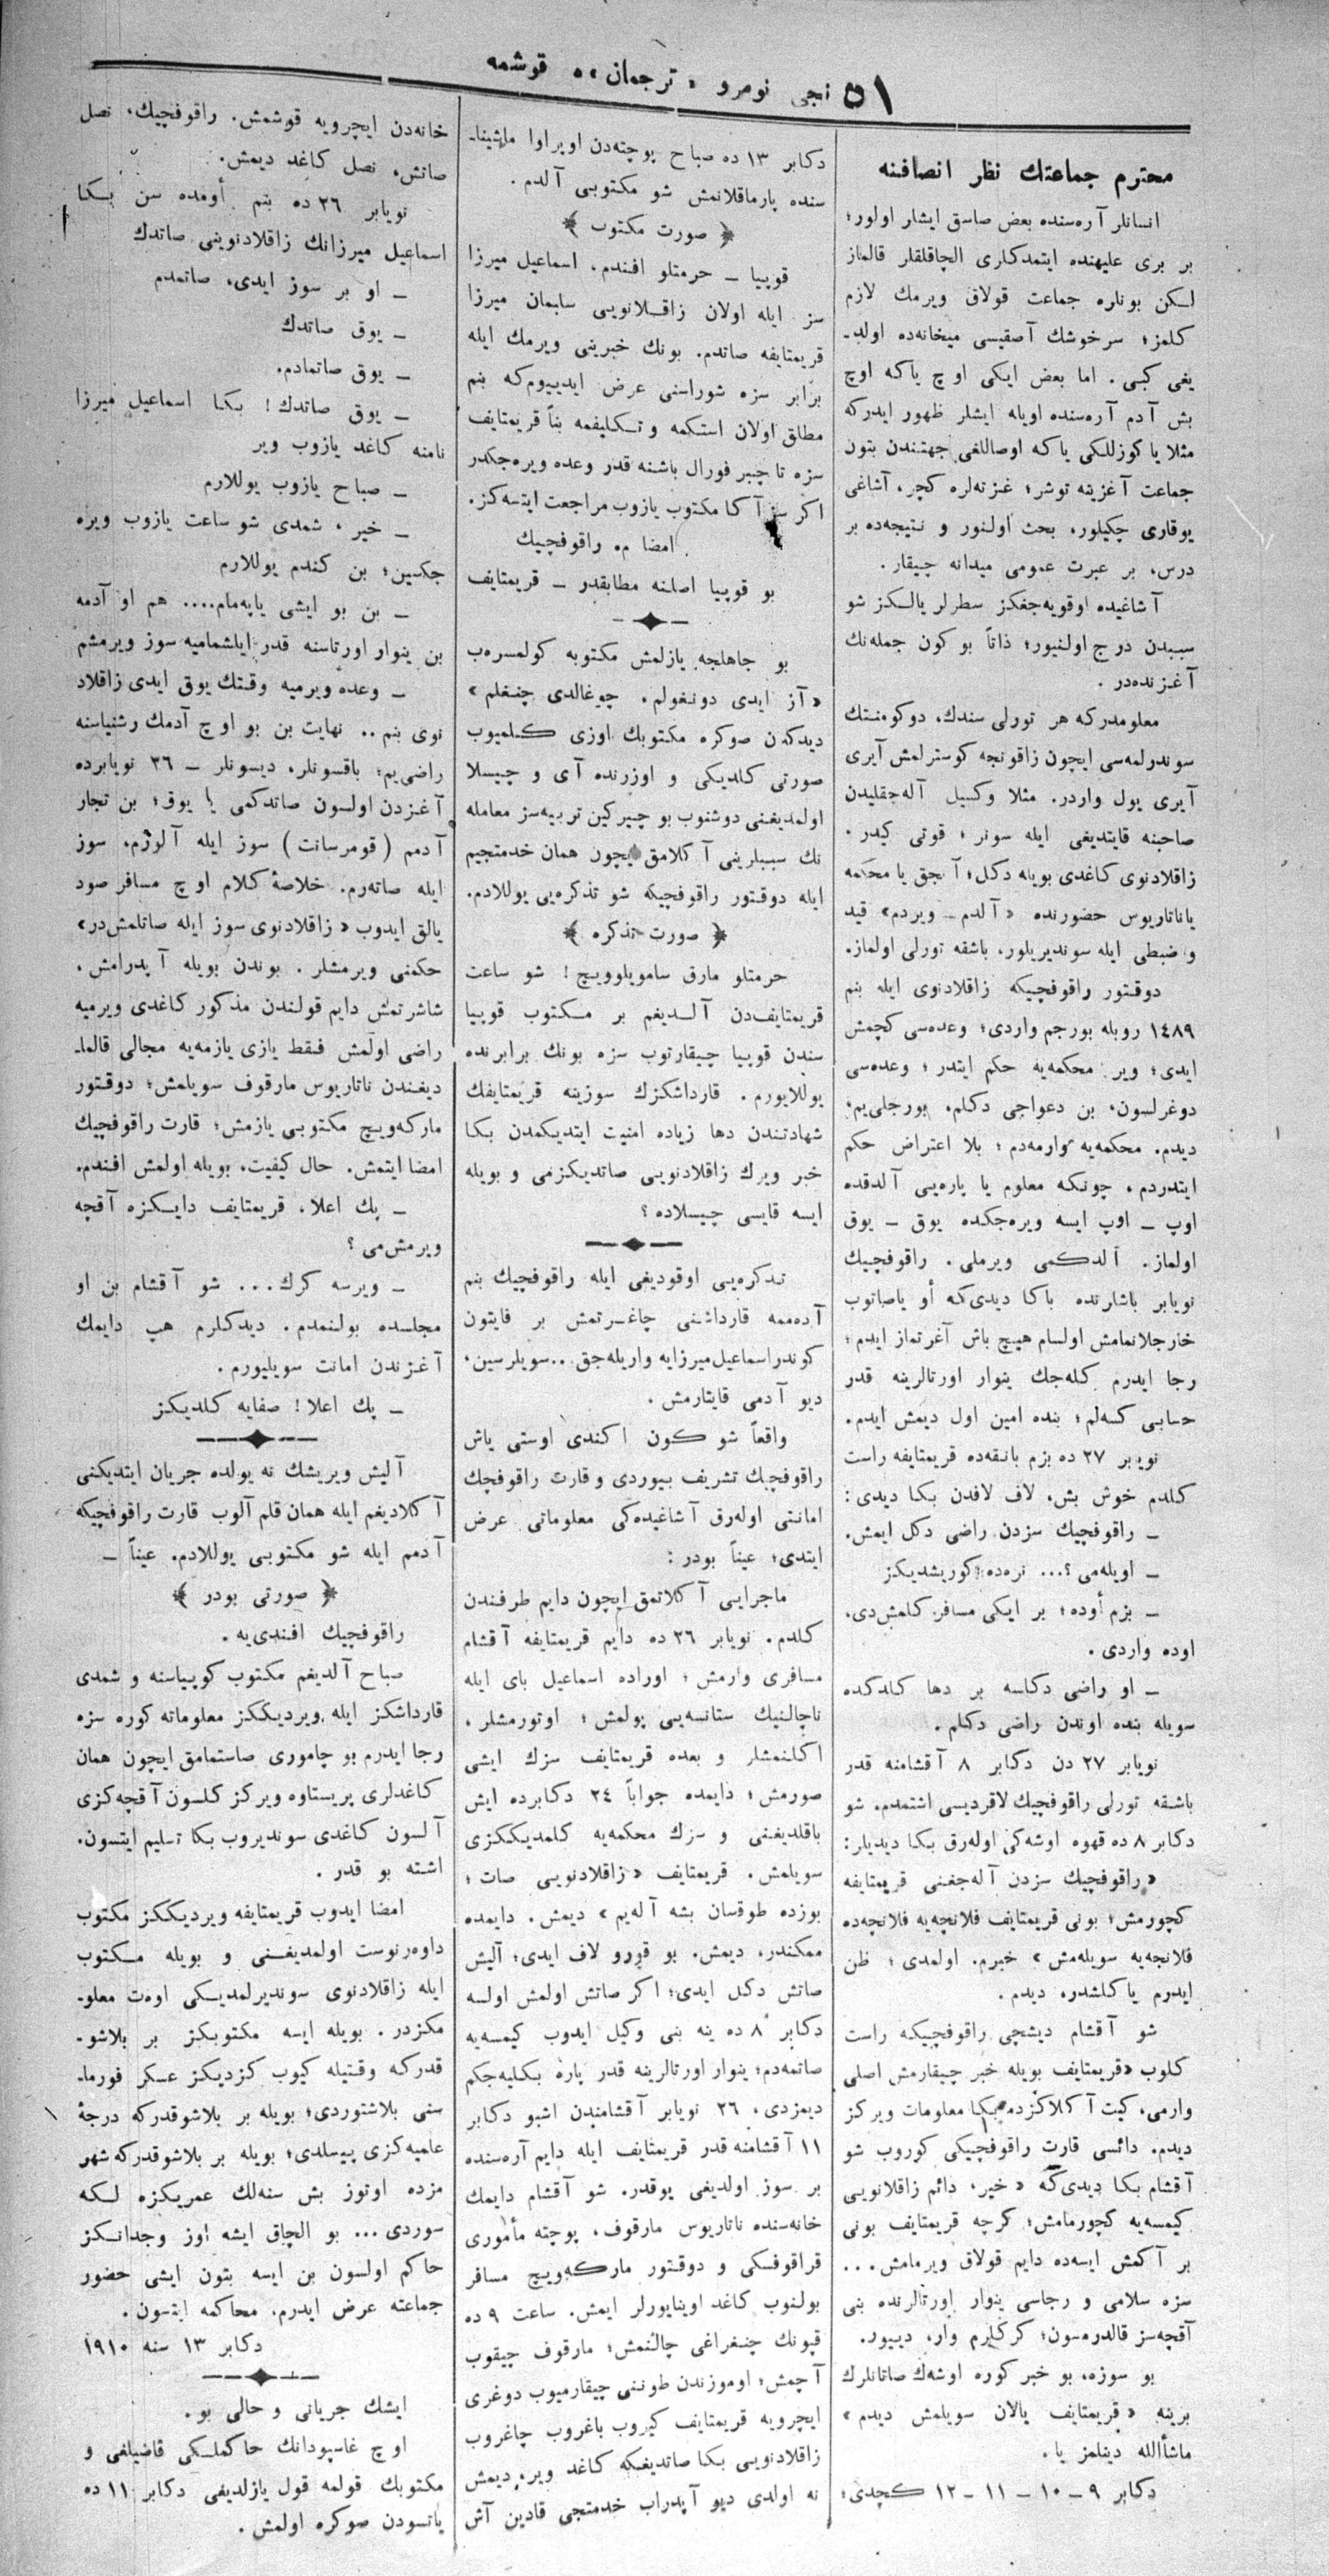 ٥١ نجی نومرو «ترجمان»ه قوشمه
محترم جماعتك نظر انصافنه
انسانلر آره‌سنده بعض صاسق ایشلر اولور؛
بر بری علیهنده ایتمدكلری الچاقلقلر قالماز
لكن بونلره جماعت قولاق ویرمك لازم
كلمز؛ سرخوشك آصقیسی میخانه‌ده اولد-
یغی كبی. اما بعض ایكی اوچ یاكه اوچ
بش آدم آره‌سنده اویله ایشلر ظهور ایدركه
مثلا یا كوزللكی یا كه اوصاللغی جهتندن بتون
جماعت آغزینه توشر؛ غزته‌لره كچر، آشاغی
یوقاری چكیلور، بحث اولنور و نتیجه‌ده بر
درس، بر عبرت عمومی میدانه چیقار.
آشاغیده اوقویه‌جغكز سطرلر یالكز شو
سببدن درج اولنیور؛ ذاتاً بو كون جمله‌نك
آغزنده‌در.
معلومدركه هر تورلی سندك، دوكومنتك
سوندرلمه‌سی ایچون زاقونجه كوسترلمش آیری
آیری یول واردر. مثلا وكسیل آله‌جقلیدن
صاحبنه قایتدیغی ایله سونر؛ قوتی كیدر.
زاقلادنوی كاغدی بویله دكل؛ آنجق یا محكمه
یا ناتاریوس حضورنده «آلدم - ویردم» قید
و ضبطی ایله سوندیریلور، باشقه تورلی اولماز.
دوقتور راقوفچیكه زاقلادنوی ایله بنم
١٤٨٩ روبله بورجم واردی؛ وعده‌سی كچمش
ایدی؛ ویر محكمه‌یه حكم ایتدر؛ وعده‌سی
دوغرلسون، بن دعواجی دكلم، بورجلی‌یم،
دیدم. محكمه‌یه وارمه‌دم؛ بلا اعتراض حكم
ایتدردم، چونكه معلوم یا پاره‌یی آلدقده
اوپ - اوپ ایسه ویره‌جكده یوق - یوق
اولماز. آلدكمی ویرملی. راقوفچیك
نویابر باشلرنده باكا دیدی‌كه أو یاصاتوب
خارجلانمامش اولسام هیچ باش آغرتماز ایدم؛
رجا ایدرم كله‌جك ینوار اورتالرینه قدر
حسابی كسه‌لم؛ بنده امین اول دیمش ایدم.
نویبر ٢٧ ده بزم بانقه‌ده قریمتایفه راست
كلدم خوش بش، لاف لافدن بكا دیدی:
- راقوفچیك سزدن راضی دكل ایمش.
- اویله‌می؟... نره‌ده كوریشدیكز
- بزم أوده؛ بر ایكی مسافر كلمش‌دی،
اوده واردی.
- او راضی دكلسه بر دها كلدكده
سویله بنده اوندن راضی دكلم.
نویابر ٢٧ دن دكابر ٨ آقشامنه قدر
باشقه تورلی راقوفچیك لاقردیسی اشتمدم. شو
دكابر ٨ ده قهوه اوشه‌كی اوله‌رق بكا دیدیلر:
«راقوفچیك سزدن آله‌جغنی قریمتایفه
كچورمش؛ بونی قریمتایف فلانچه‌یه فلانچه‌ده
فلانجه‌یه سویله‌مش» خبرم. اولمدی؛ ظن
ایدرم یاكلشدر، دیدم.
شو آقشام دیشچی راقوفچیكه راست
كلوب «قریمتایف بویله خبر چیقارمش اصلی
وارمی، كیت آكلاكزده بكا معلومات ویركز
دیدم. دائسی قارت راقوفچیكی كوروب شو
آقشام بكا دیدی‌كه «خیر، دائم زاقلانویی
كیمسه‌یه كچورمامش؛ كرچه قریمتایف بونی
بر آكمش ایسه‌ده دایم قولاق ویرمامش...
سزه سلامی و رجاسی ینوار اورتالرنده بنی
آقچه‌سز قالدرمسون؛ كركلرم وار، دییور.
بو سوزه، بو خبر كوره اوشه‌ك صاتانلرك
برینه «قریمتایف یالان سویلمش دیدم»
ماشأالله دیكلمز یا.
دكابر ٩ - ١٠ - ١١ - ١٢ كچدی؛
دكابر ١٣ ده صباح پوچته‌دن اوپراوا ماشینا-
سنده پارماقلانمش شو مكتوبی آلدم.
﴿ صورت مكتوب ﴾
قوپیا - حرمتلو افندم، اسماعیل میرزا
سز ایله اولان زاقلانویی سلیمان میرزا
قریمتایفه صاتدم. بونك خبرینی ویرمك ایله
برابر سزه شوراسنی عرض ایدییوم‌كه بنم
مطلق اولان استكمه و تكلیفمه بناً قریمتایف
سزه تا چبر فورال باشنه قدر وعده ویره‌جكدر
اكر سز آكا مكتوب یازوب مراجعت ایتسه‌كز.
امضا م. راقوفچیك
بو قوپیا اصلنه مطابقدر - قریمتایف
بو جاهلجه یازلمش مكتوبه كولمسره‌ب
«آز ایدی دونغولم، چوغالدی چنغلم»
دیدكه‌ن صوكره مكتوبك اوزی كلمیوب
صورتی كلدیكی و اوزرنده آی و چیسلا
اولمدیغنی دوشنوب بو چیركین تربیه‌سز معامله
نك سببلرینی آكلامق ایچون همان خدمتجیم
ایله دوقتور راقوفچیكه شو تذكره‌یی یوللادم.
﴿ صورت تذكره ﴾
حرمتلو مارق سامویلوویچ! شو ساعت
قریمتایف‌دن آلدیغم بر مكتوب قوپیا
سندن قوپیا چیقارتوب سزه بونك برابرنده
یوللایورم. قارداشكزك سوزینه قریمتایفك
شهادتندن دها زیاده امنیت ایتدیكمدن بكا
خبر ویرك زاقلادنویی صاتدیكزمی و بویله
ایسه قایسی چیسلاده؟
تذكره‌یی اوقودیغی ایله راقوفچیك بنم
آده‌ممه قارداشنی چاغرتمش بر فایتون
كوندر اسماعیل میرزایه واریله‌جق.. سویلرسین،
دیو آدمی قایتارمش.
واقعاً شو كون اكندی اوستی یاش
راقوفچیك تشریف بیوردی و قارت راقوفچك
امانتی اوله‌رق آشاغیده‌كی معلوماتی عرض
ایتدی؛ عیناً بودر:
ماجرایی آكلاتمق ایچون دایم طرفندن
كلدم. نویابر ٢٦ ده دایم قریمتایفه آقشام
مسافری وارمش؛ اوراده اسماعیل بای ایله
ناچالنیك ستانسه‌یی بولمش؛ اوتورمشلر،
اكلنمشلر و بعده قریمتایف سزك ایشی
صورمش؛ دایمده جواباً ٢٤ دكابرده ایش
باقلدیغنی و سزك محكمه‌یه كلمدیككزی
سویلمش. قریمتایف «زاقلادنویی صات؛
یوزده طوقسان بشه آله‌یم» دیمش. دایمده
ممكندر، دیمش. بو قورو لاف ایدی؛ آلیش
صاتش دكل ایدی؛ اكر صاتش اولمش اولسه
دكابر ٨ ده ینه بنی وكیل ایدوب كیمسه‌یه
صاتمه‌دم؛ ینوار اورتالرینه قدر پاره بكلیه‌جكم
دیمزدی، ٢٦ نویابر آقشامندن اشبو دكابر
١١ آقشامنه قدر قریمتایف ایله دایم آره‌سنده
بر سوز اولدیغی یوقدر. شو آقشام دایمك
خانه‌سنده ناتاریوس مارقوف، پوچته مأموری
قراقوفسكی و دوقتور ماركه‌ویچ مسافر
بولنوب كاغد اوینایورلر ایمش. ساعت ٩ ده
قپونك چنغراغی چالنمش؛ مارقوف چیقوب
آچمش؛ اوموزندن طوننی چیقارمیوب دوغری
ایچرویه قریمتایف كیروب باغروب چاغروب
زاقلادنویی بكا صاتدیغكه كاغد ویر، دیمش
نه اولدی دیو آپدراب خدمتجی قادین آش
خانه‌دن ایچرویه قوشمش. راقوفچیك، نصل
صاتش، نصل كاغد دیمش.
نویابر ٢٦ ده بنم أومده سن بكا
اسماعیل میرزانك زاقلادنوینی صاتدك
- او بر سوز ایدی، صاتمدم
- یوق صاتدك
- یوق صاتمادم.
- یوق صاتدك! بكا اسماعیل میرزا
نامنه كاغد یازوب ویر
- صباح یازوب یوللارم
- خیر، شمدی شو ساعت یازوب ویره
جكسین؛ بن كندم یوللارم
- بن بو ایشی یاپه‌مام.... هم او آدمه
بن ینوار اورتاسنه قدر ایلشمامیه سوز ویرمشم
- وعده ویرمیه وقتك یوق ایدی زاقلاد
نوی بنم.. نهایت بن بو اوچ آدمك رشنیاسنه
راضی‌یم؛ باقسونلر، دیسونلر - ٢٦ نویابرده
آغزدن اولسون صاتدكمی یا یوق؛ بن تجار
آدمم (قومرسانت) سوز ایله آلورم، سوز
ایله صاته‌رم. خلاصهٔ كلام اوچ مسافر صود
یالق ایدوب «زاقلادنوی سوز ایله صاتلمش‌در»
حكمنی ویرمشلر. بوندن بویله آپدرامش،
شاشرتمش دایم قولندن مذكور كاغدی ویرمیه
راضی اولمش فقط یازی یازمه‌یه مجالی قالما-
دیغندن ناتاریوس مارقوف سویلمش؛ دوقتور
ماركه‌ویچ مكتوبی یازمش؛ قارت راقوفچیك
امضا ایتمش. حال كیفیت، بویله اولمش افندم.
- پك اعلا، قریمتایف دایكزه آقچه
ویرمش‌می؟
- ویرسه كرك... شو آقشام بن او
مجلسده بولنمدم. دیدكلرم هپ دایمك
آغزندن امانت سویلیورم.
- پك اعلا! صفایه كلدیكز
آلیش ویریشك نه یولده جریان ایتدیكنی
آكلادیغم ایله همان قلم آلوب قارت راقوفچیكه
آدمم ایله شو مكتوبی یوللادم. عیناً -
﴿ صورتی بودر ﴾
راقوفچیك افندی‌یه.
صباح آلدیغم مكتوب كوپیاسنه و شمدی
قارداشكز ایله ویردیككز معلوماته كوره سزه
رجا ایدرم بو چاموری صاستمامق ایچون همان
كاغدلری پریستاوه ویركز كلسون آقچه‌كزی
آلسون كاغدی سوندیروب بكا تسلیم ایتسون.
اشته بو قدر.
امضا ایدوب قریمتایفه ویردیككز مكتوب
داوه‌رنوست اولمدیغنی و بویله مكتوب
ایله زاقلادنوی سوندیرلمدیكی اوت معلو-
مكزدر. بویله ایسه مكتوبكز بر بلاشو-
قدركه وقتیله كیوب كزدیكز عسكر فورما-
سنی بلاشتوردی؛ بویله بر بلاشوقدركه درجهٔ
علمیه‌كزی پیسلدی؛ بویله بر بلاشوقدركه شهر
مزده اوتوز بش سنه‌لك عمریكزه لكه
سوردی... بو الچاق ایشه اوز وجدانكز
حاكم اولسون بن ایسه بتون ایشی حضور
جماعته عرض ایدرم. محاكمه ایتسون.
دكابر ١٣ سنه ١٩١٠
ایشك جریانی و حالی بو.
اوچ غاسپودانك حاكملكی قاضیلغی و
مكتوبك قولمه قول یازلدیغی دكابر ١١ ده
یاتسودن صوكره اولمش.